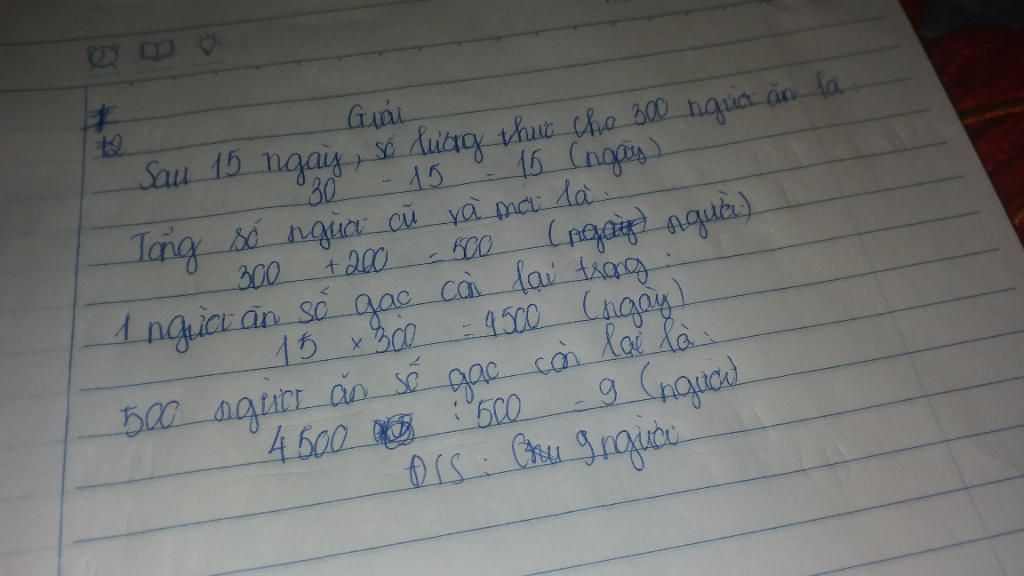 Giải
Sau 15 ngày, số lương thực cho 300 người ăn là:
30 - 15 = 15 (ngày)
Tổng số người cũ và mới là:
300 + 200 = 500 (người)
1 người ăn số gạo còn lại trong:
15 × 300 = 4500 (ngày)
500 người ăn số gạo còn lại là:
4500 : 500 = 9 (người)
Đ/S: 9 người